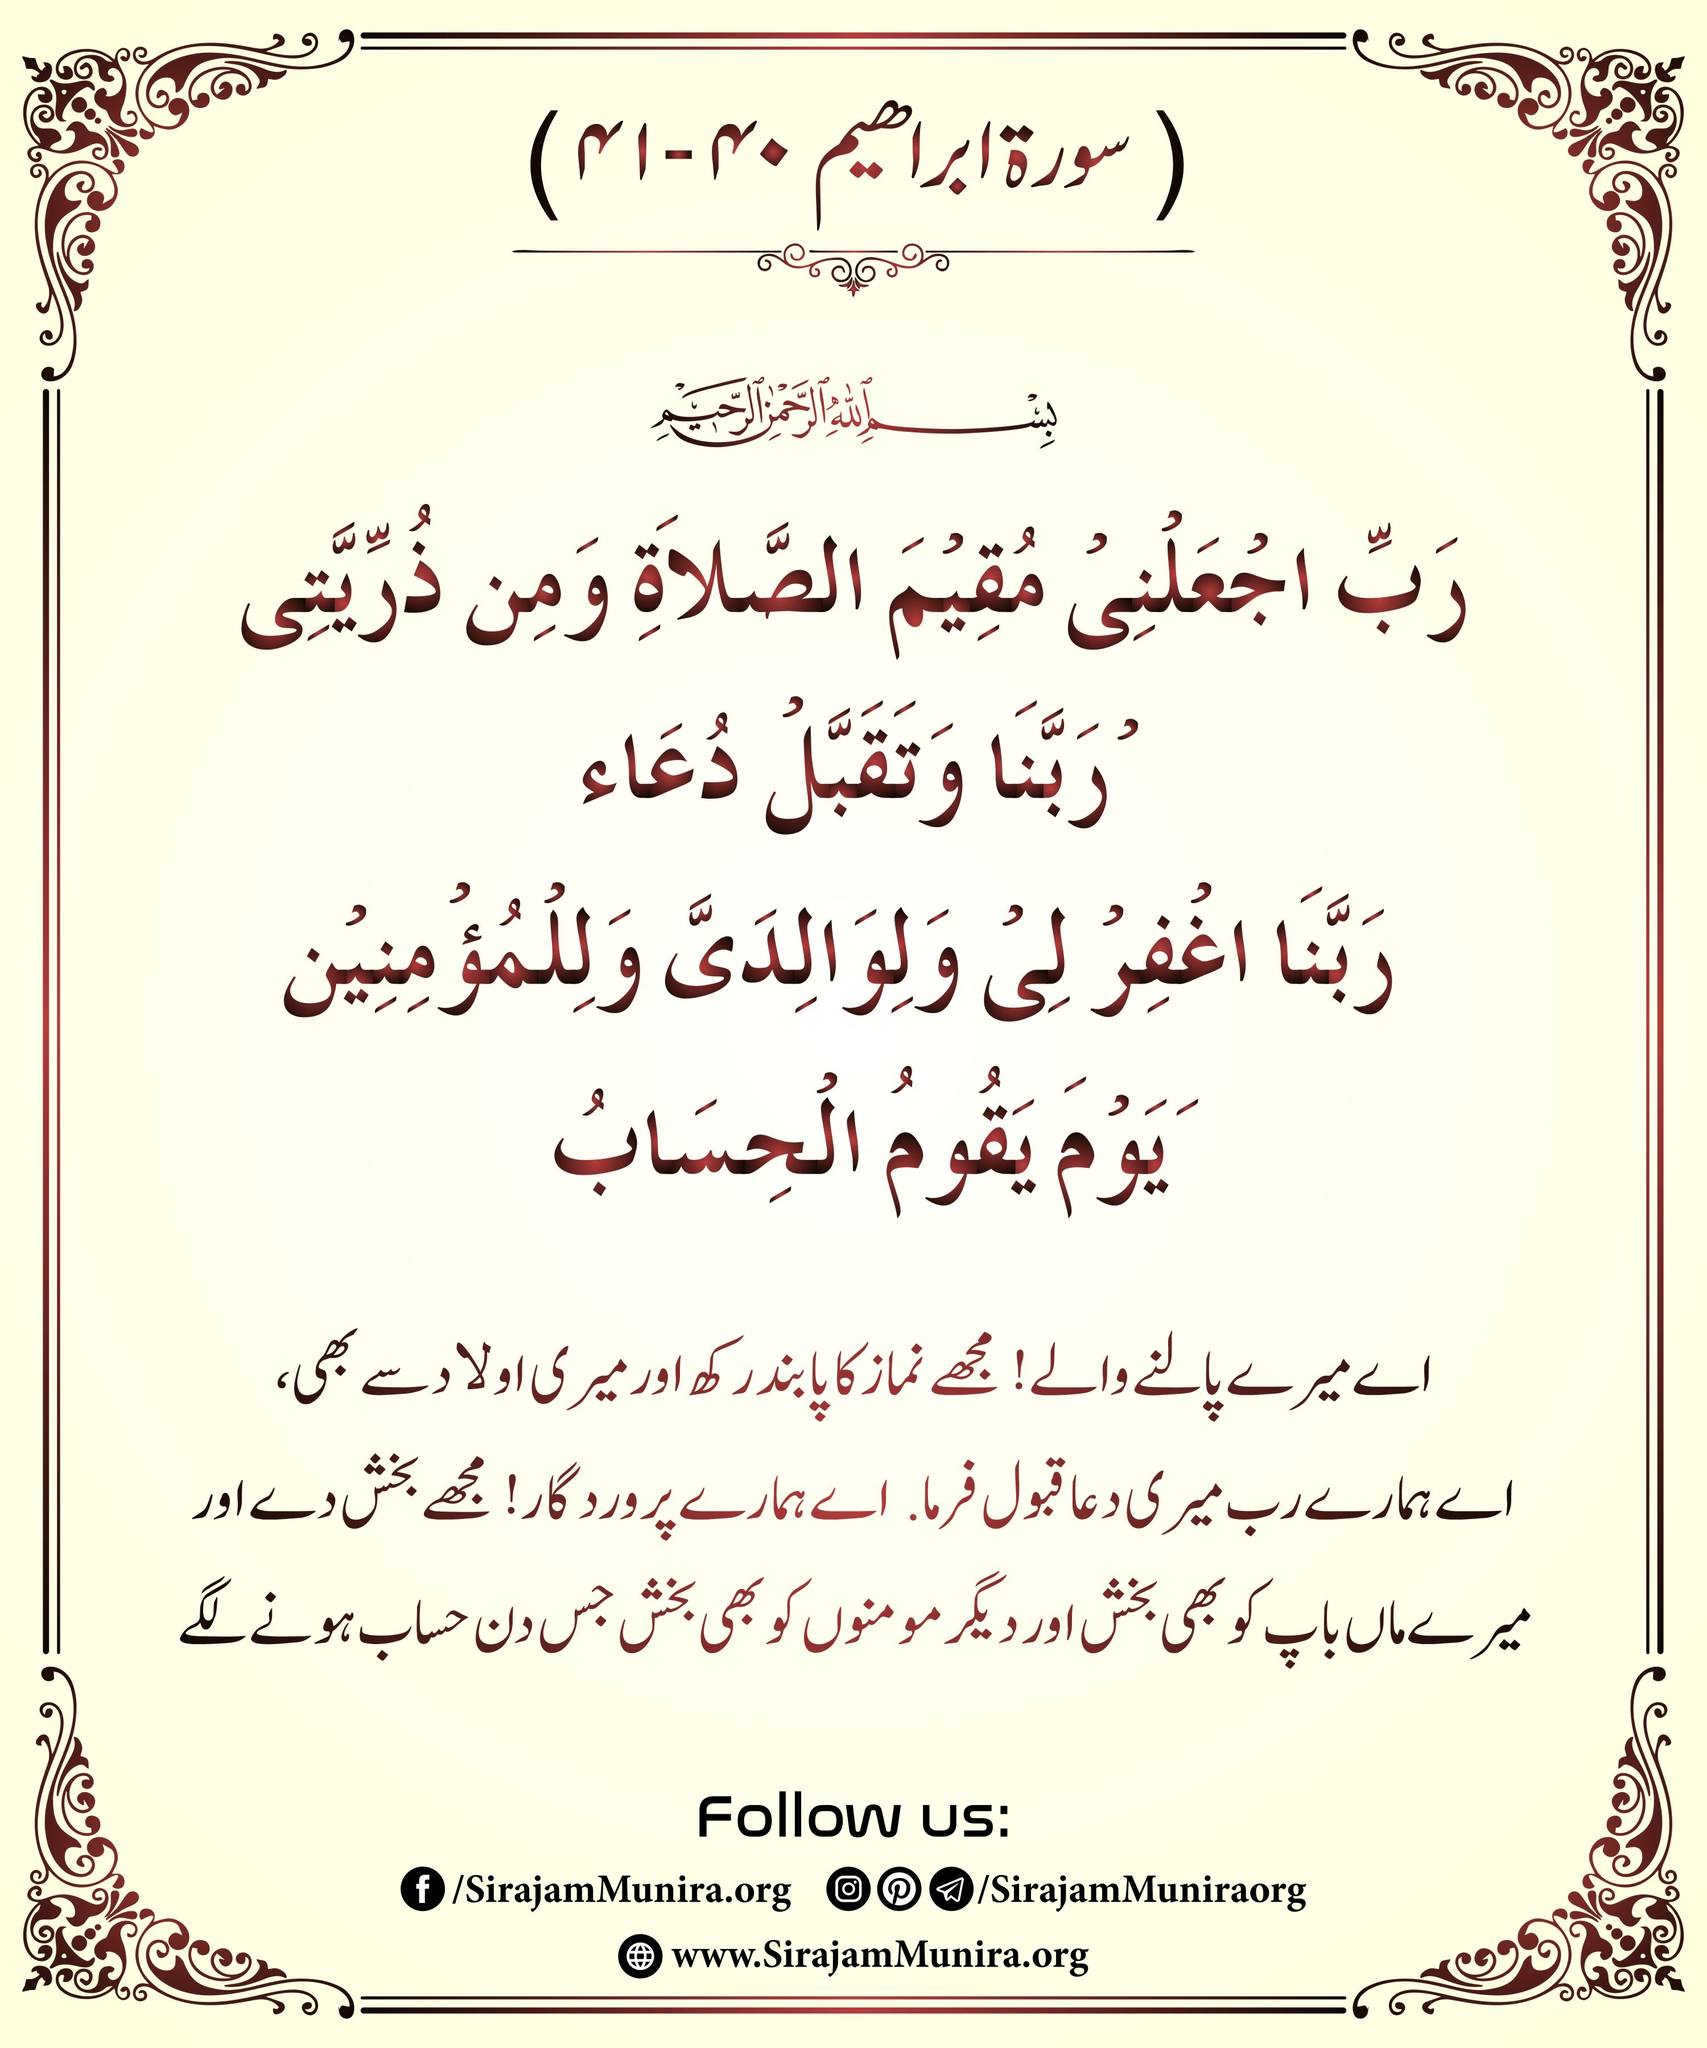 ( سورۃ ابراھیم ۴۰-۴۱ )
بِسْمِ ٱللَّهِ ٱلرَّحْمَٰنِ ٱلرَّحِيمِ
رَبِّ اجْعَلْنِیْ مُقِیْمَ الصَّلاَةِ وَمِن ذُرِّیَّتِی
ْرَبَّنَا وَتَقَبَّلْ دُعَاء
رَبَّنَا اغْفِرْ لِیْ وَلِوَالِدَیَّ وَلِلْمُؤْمِنِیْن
َیَوْمَ یَقُومُ الْحِسَابُ
اے میرے پالنے والے! مجھے نماز کا پابند رکھ اور میری اولاد سے بھی،
اے ہمارے رب میری دعا قبول فرما. اے ہمارے پروردگار! مجھے بخش دے اور
میرے ماں باپ کو بھی بخش اور دیگر مومنوں کو بھی بخش جس دن حساب ہونے لگے
Follow us:
/SirajamMunira.org /SirajamMuniraorg
www.SirajamMunira.org